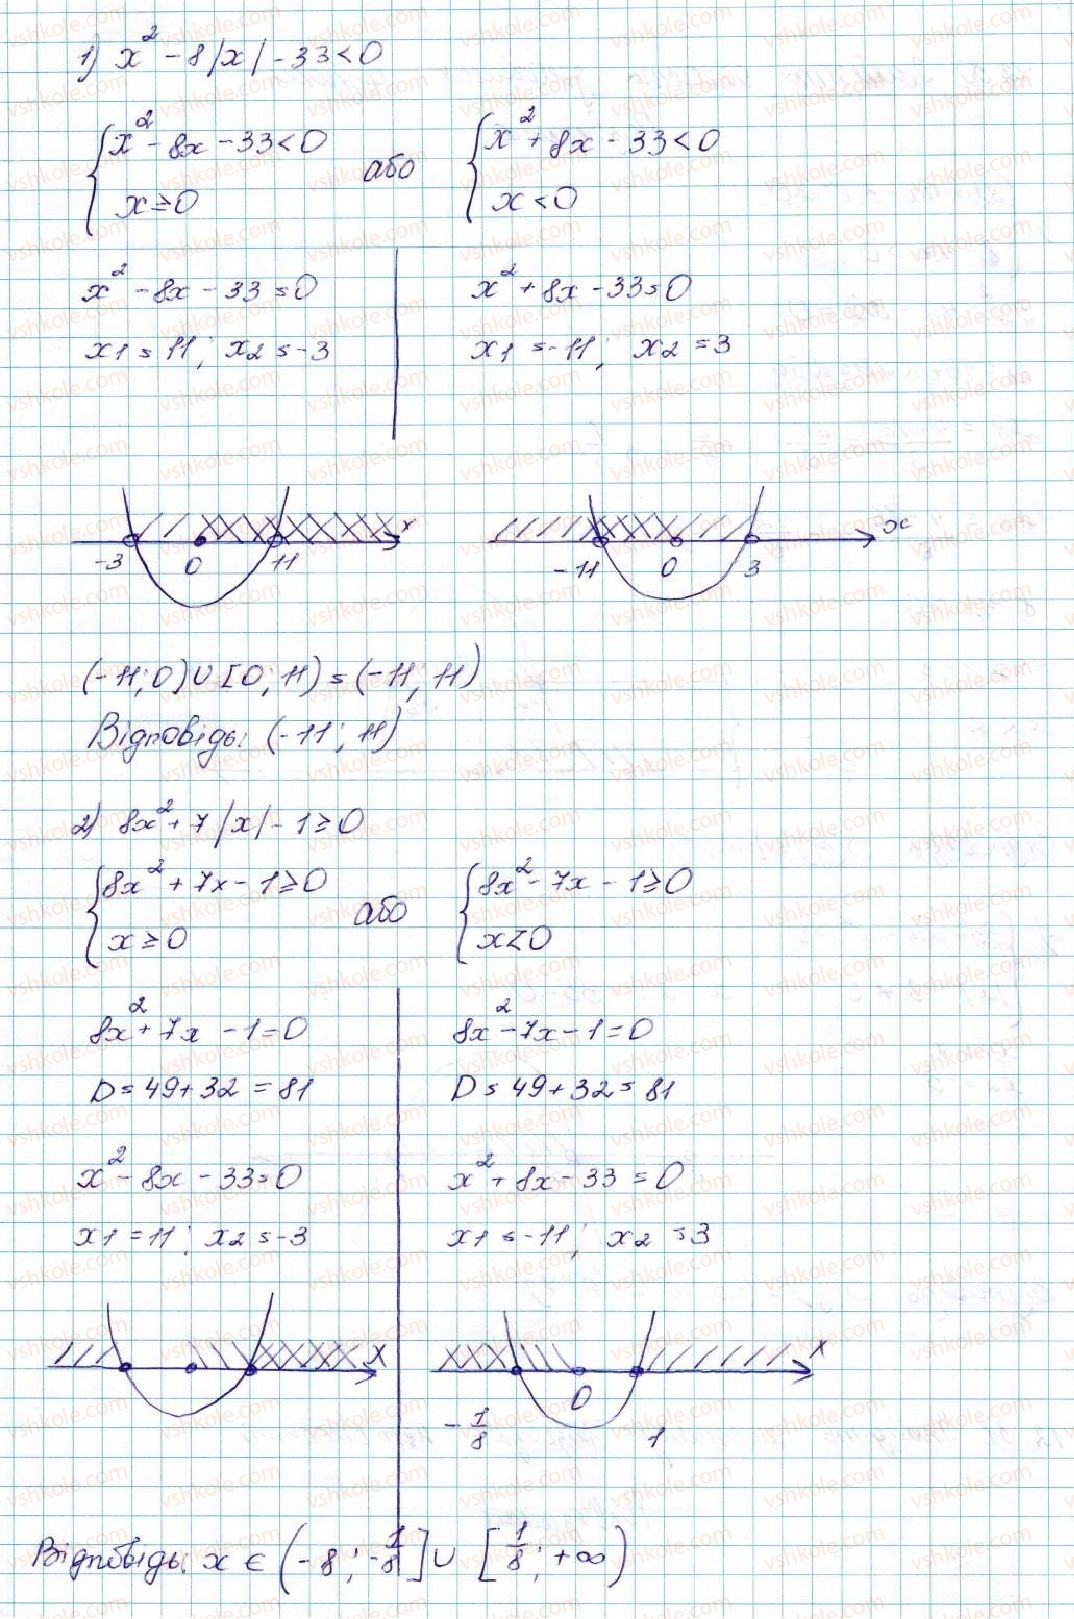 1) x² - 8|x| - 33 < 0
{ x² - 8x - 33 < 0
x ≥ 0
або
{ x² + 8x - 33 < 0
x < 0
x² - 8x - 33 = 0
x1 = 11; x2 = -3
x² + 8x - 33 = 0
x1 = -11; x2 = 3
-3 0 11 x
-11 0 3 x
(-11; 0) ∪ [0; 11) = (-11; 11)
Відповідь: (-11; 11)
2) 8x² + 7|x| - 1 ≥ 0
{ 8x² + 7x - 1 ≥ 0
x ≥ 0
або
{ 8x² - 7x - 1 ≥ 0
x < 0
8x² + 7x - 1 = 0
D = 49 + 32 = 81
x² - 8x - 33 = 0
x1 = 11; x2 = -3
8x² - 7x - 1 = 0
D = 49 + 32 = 81
x² + 8x - 33 = 0
x1 = -11; x2 = 3
x
-1/8 0 1 x
Відповідь: x ∈ (-8; -1/8] ∪ [1/8; +∞)
vshkole.com